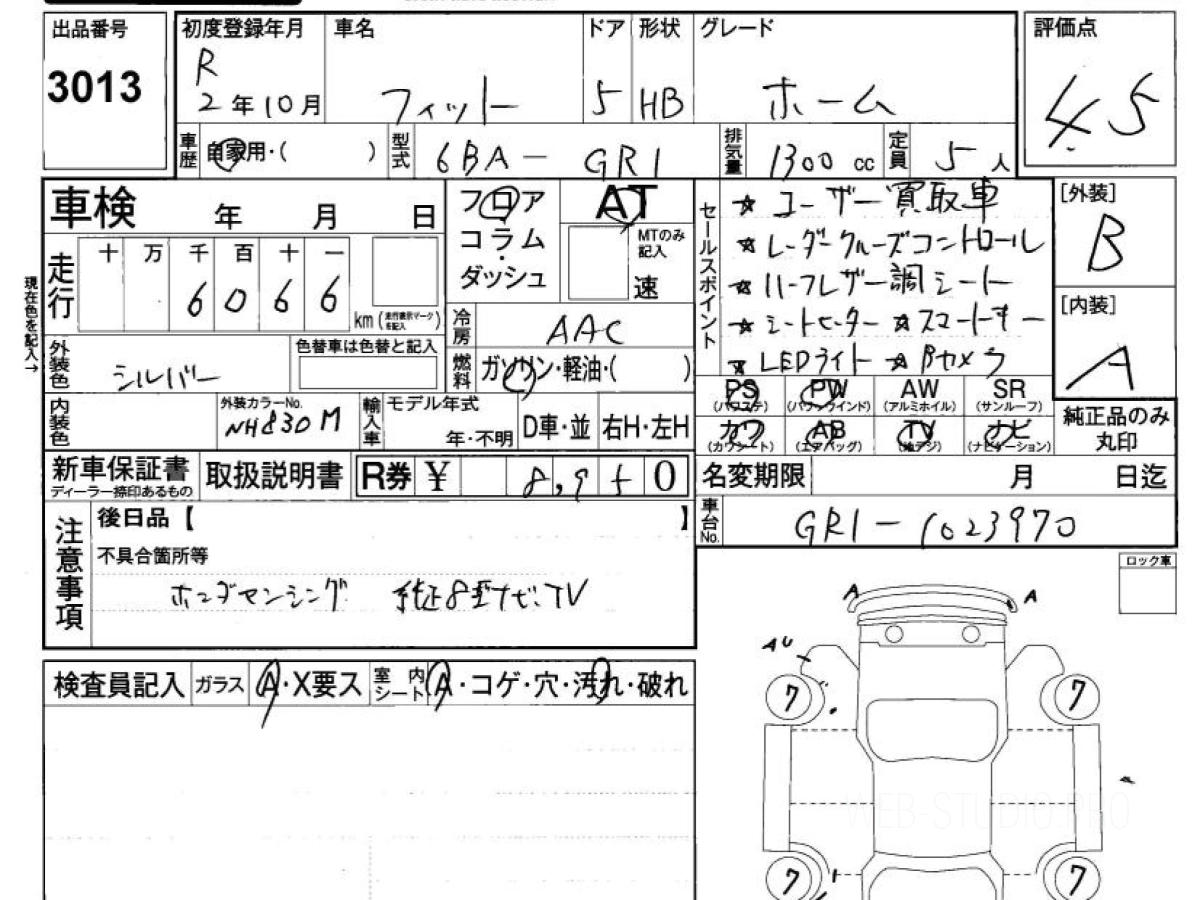 出品番号 初度登録年月 車名 ドア 形状 グレード 評価点
3013 R 2年10月 フィット 5 HB ホーム 4.5
車歴 自家用・( ) 型式 6BA-GR1 排気量 1300cc 定員 5人
車検 年 月 日 フロア AT セールスポイント ☆ユーザー買取車 [外装]
走行 十 万 千 百 十 一 コラム・ MTのみ記入 ☆レーダークルーズコントロール B
6 0 6 6 km (走行表示マークを記入) ダッシュ 速 ☆ハーフレザー調シート [内装]
現在色を記入→
冷房 AAC ☆シートヒーター ☆スマートキー A
外装色 シルバー 色替車は色替と記入 燃料 ガソリン・軽油・( ) ☆LEDライト ☆Bカメラ
PS (パワステ) PW (パワーウインド) AW (アルミホイル) SR (サンルーフ)
内装色 外装カラーNo. NH830M 輸入車 モデル年式 年・不明 D車・並 右H・左H 純正品のみ丸印
カワ (カワシート) AB (エアバッグ) TV (地デジ) ナビ (ナビゲーション)
新車保証書 ディーラー捺印あるもの 取扱説明書 R券 ¥ 8,950 名変期限 月 日迄
注意事項 後日品【 】 車台No. GR1-1023970
不具合箇所等 ロック車
ホンダセンシング 純正8型ナビ、TV
A A
AU
検査員記入 ガラス A・X要ス 室内シート A・コゲ・穴・汚れ・破れ
7 7
WEB-STUDIO.PRO
7 7